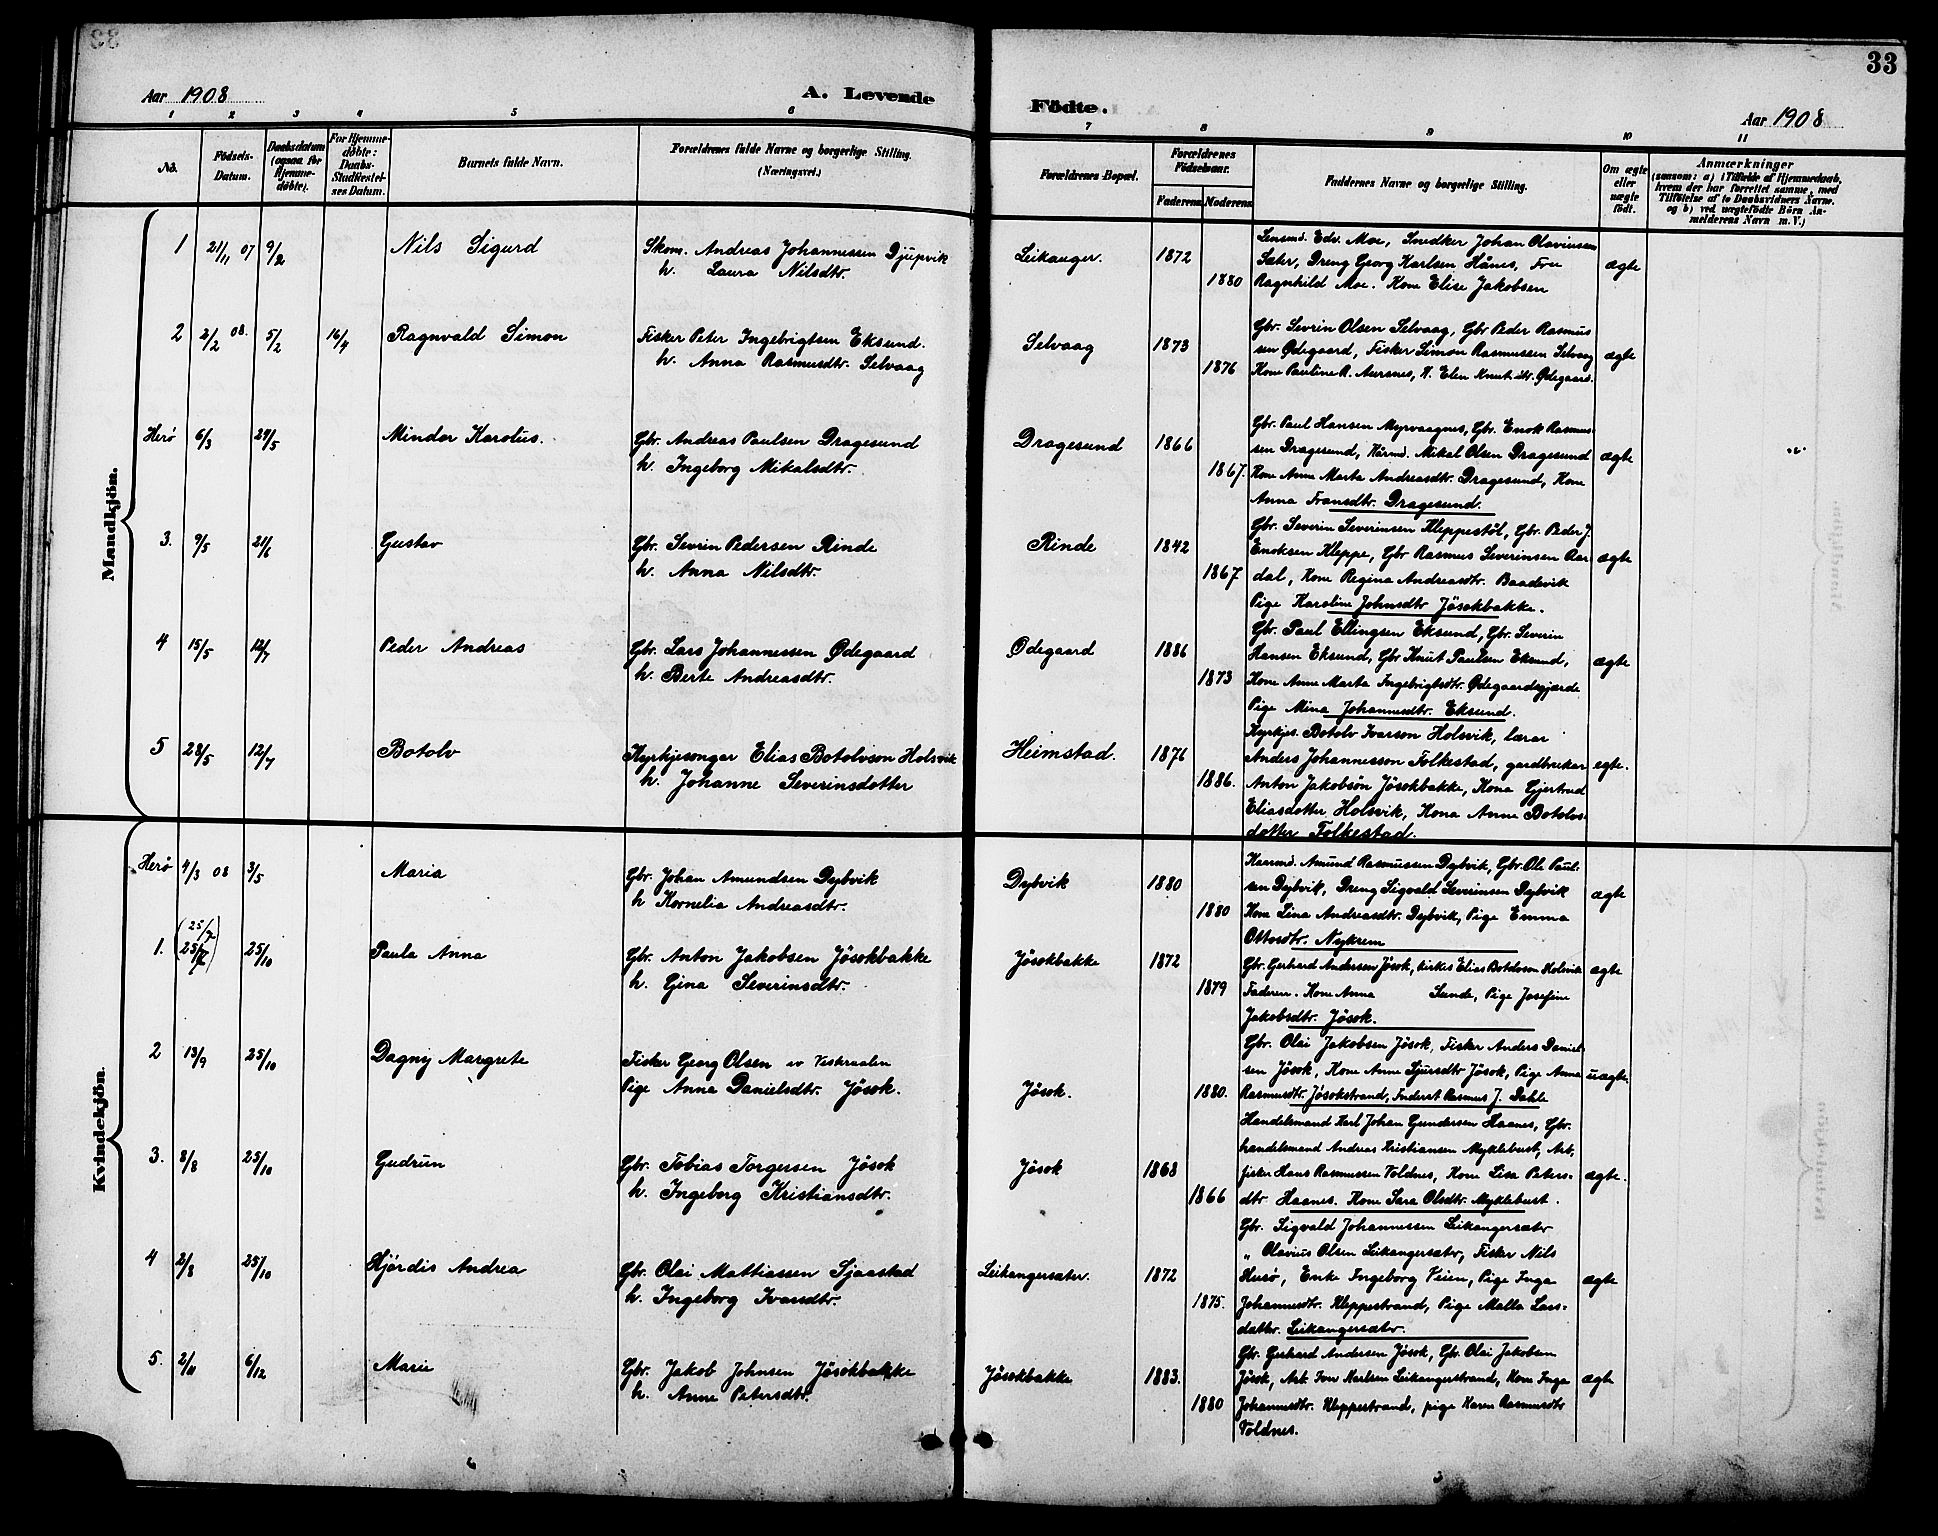 33
Aar 1908
A. Levende
Födte.
Aar 1908
1 2 3 4 5 6 7 8 9 10 11
No.
Födsels-
Datum.
Daabsdatum
(ogsaa for
Hjemme-
döbte).
For Hjemme-
döbte:
Daabs-
Stadfæstel-
ses Datum.
Barnets fulde Navn.
Forældrenes fulde Navne og borgerlige Stilling.
(Næringsvei.)
Forældrenes Bopæl.
Forældrenes
Födselsaar.
Faderens Moderens
Faddernes Navne og borgerlige Stilling.
Om ægte
eller
uægte
födt.
Anmærkninger
(saasom: a) i Tilfælde af Hjemmedaab,
hvem der har forrettet samme, med
Tilföielse af to Daabsvidners Navne.
og b) ved uægtefödte Börn An-
melderens Navn m. V.)
Mandkjön.
1 21/11 07 9/2 Nils Sigurd
Skom. Andreas Johannessen Djupvik
h. Laura Nilsdtr.
Leikanger. 1872 1880
Lensmd. Edv. Moe, Snedker Johan Olavinssen
Sæter, Dreng Georg Karlsen Hånes, Frue
Ragnhild Moe. Kone Elise Jakobsen
ægte
2 2/2 08. 5/2 16/4 Ragnvald Simon
Fisker Peter Ingebrigtsen Eksund.
h. Anna Rasmusdtr. Selvaag
Selvaag 1873 1876
Gbr. Sevrin Olsen Selvaag, Gbr Peder Rasmus
sen Ødegaard, Fisker Simon Rasmussen Selvaag
Kone Pauline R. Aursnes, K. Elen Knutsdtr. Ødegaard.
ægte
Herø 6/3 24/5 Mindor Karolus.
Gbr. Andreas Paulsen Dragesund
h. Ingeborg Mikalsdtr.
Dragesund 1866 1867.
Gbr. Paul Hansen Myrvaagnes, Gbr. Enok Rasmus-
sen Dragesund, Kårmd. Mikal Olsen Dragesund
Kone Anne Marta Andreasdtr. Dragesund, Kone
Anna Fransdtr. Dragesund.
ægte
3. 9/5 21/6 Gustav
Gbr. Sevrin Pedersen Rinde
h. Anna Nilsdtr.
Rinde 1842 1867
Gbr. Severin Severinsen Kleppestøl, Gbr. Peder J.
Enoksen Kleppe, Gbr Rasmus Severinsen Aar-
dal, Kone Regina Andreasdtr. Baadsvik
Pige Karoline Johnsdtr Jøsokbakke.
ægte
4 15/5 12/7 Peder Andreas
Gbr. Lars Johannessen Ødegaard
h. Berte Andreasdtr.
Ødegaard 1886 1873
Gbr. Paul Ellingsen Eksund, Gbr. Severin
Hansen Eksund, Gbr Knut Paulsen Eksund,
Kone Anne Marta Ingebrigtsdtr. Ødegaardsgjærde
Pige Mina Johannesdtr. Eksund.
ægte
5 28/5 12/7 Botolv
Kyrkjesongar Elias Botolvson Holsvik
h. Johanne Severinsdotter
Heimstad. 1876 1886.
Kyrkjes. Botolv Ivarson Holsvik, lærar
Anders Johannesson Folkestad, gardbrukar
Anton Jakobsøn Jøsokbakke, Kona Gjertrud
Eliasdotter Holsvik, Kona Anne Botolvs-
dotter Folkestad.
egte.
Kvindekjön.
Herø 4/3 08 3/5 Maria
Gbr. Johan Amundsen Dybvik
h Kornelia Andreasdtr.
Dybvik 1880 1880
Kaarmd. Amund Rasmussen Dybvik, Gbr. Ole Paul-
sen Dybvik, Dreng Sigvald Severinsen Dybvik
Kone Lina Andreasdtr. Dybvik, Pige Emma
Ottosdtr. Nykrem
ægte
(25/7)
1. 25/7 25/10 Paula Anna
Gbr. Anton Jakobsen Jøsokbakke
h. Gina Severinsdtr.
Jøsokbakke 1872 1879
Gbr. Gerhard Andersen Jøsok, kirkes Elias Botolvson Holsvik
Faderen. Kone Anna Sunde, Pige Josefine
Jakobsdtr. Jøsok.
ægte
2 13/9 25/10 Dagny Margrete
Fisker Georg Olsen av Veskraalen
Pige Anna Danielsdtr. Jøsok.
Jøsok. 1880.
Gbr. Olai Jakobsen Jøsok, Fisker Anders Daniel-
sen Jøsok, Kone Anne Sjursdtr Jøsok, Pige Anna
Rasmusdtr. Jøsokstrand, Inderst Rasmus J. Dahle
uægte.
3. 8/8 25/10 Gudrun
Gbr. Tobias Torgersen Jøsok
h. Ingeborg Kristiansdtr.
Jøsok 1868 1866
Handelsmand Karl Johan Gundersen Haanes, Gbr.
handelsmand Andreas Kristiansen Myklebust, Arb,
fisker Hans Rasmussen Voldnes, Kone Lisa Peters-
dtr Haanes. Kone Sara Olsdtr. Myklebust.
ægte.
4 2/8 25/10 Hjørdis Andrea
Gbr. Olai Mattiassen Sjaastad
h. Ingeborg Ivarsdtr.
Leikangersæter. 1872 1875.
Gbr. Sigvald Johannessen Leikangersætr
„ Olavius Olsen Leikangersætr, Fisker Nils
Husø, Enke Ingeborg Veien, Pige Inga
Johannesdtr. Kleppestrand, Pige Malla Lars-
datter. Leikangersætr.
ægte
5. 2/11 6/12 Marie
Gbr. Jakob Johnsen Jøsokbakke
h. Anne Petersdtr.
Jøsokbakke 1883. 1880
Gbr. Gerhard Andersen Jøsok, Gbr. Olai Jakobsen
Jøsok, Arb. Iver Karlsen Leikangerstrand, Kone Inga
Johannesdtr. Kleppestrand, pige Karen Rasmusdtr
Voldnes.
ægte